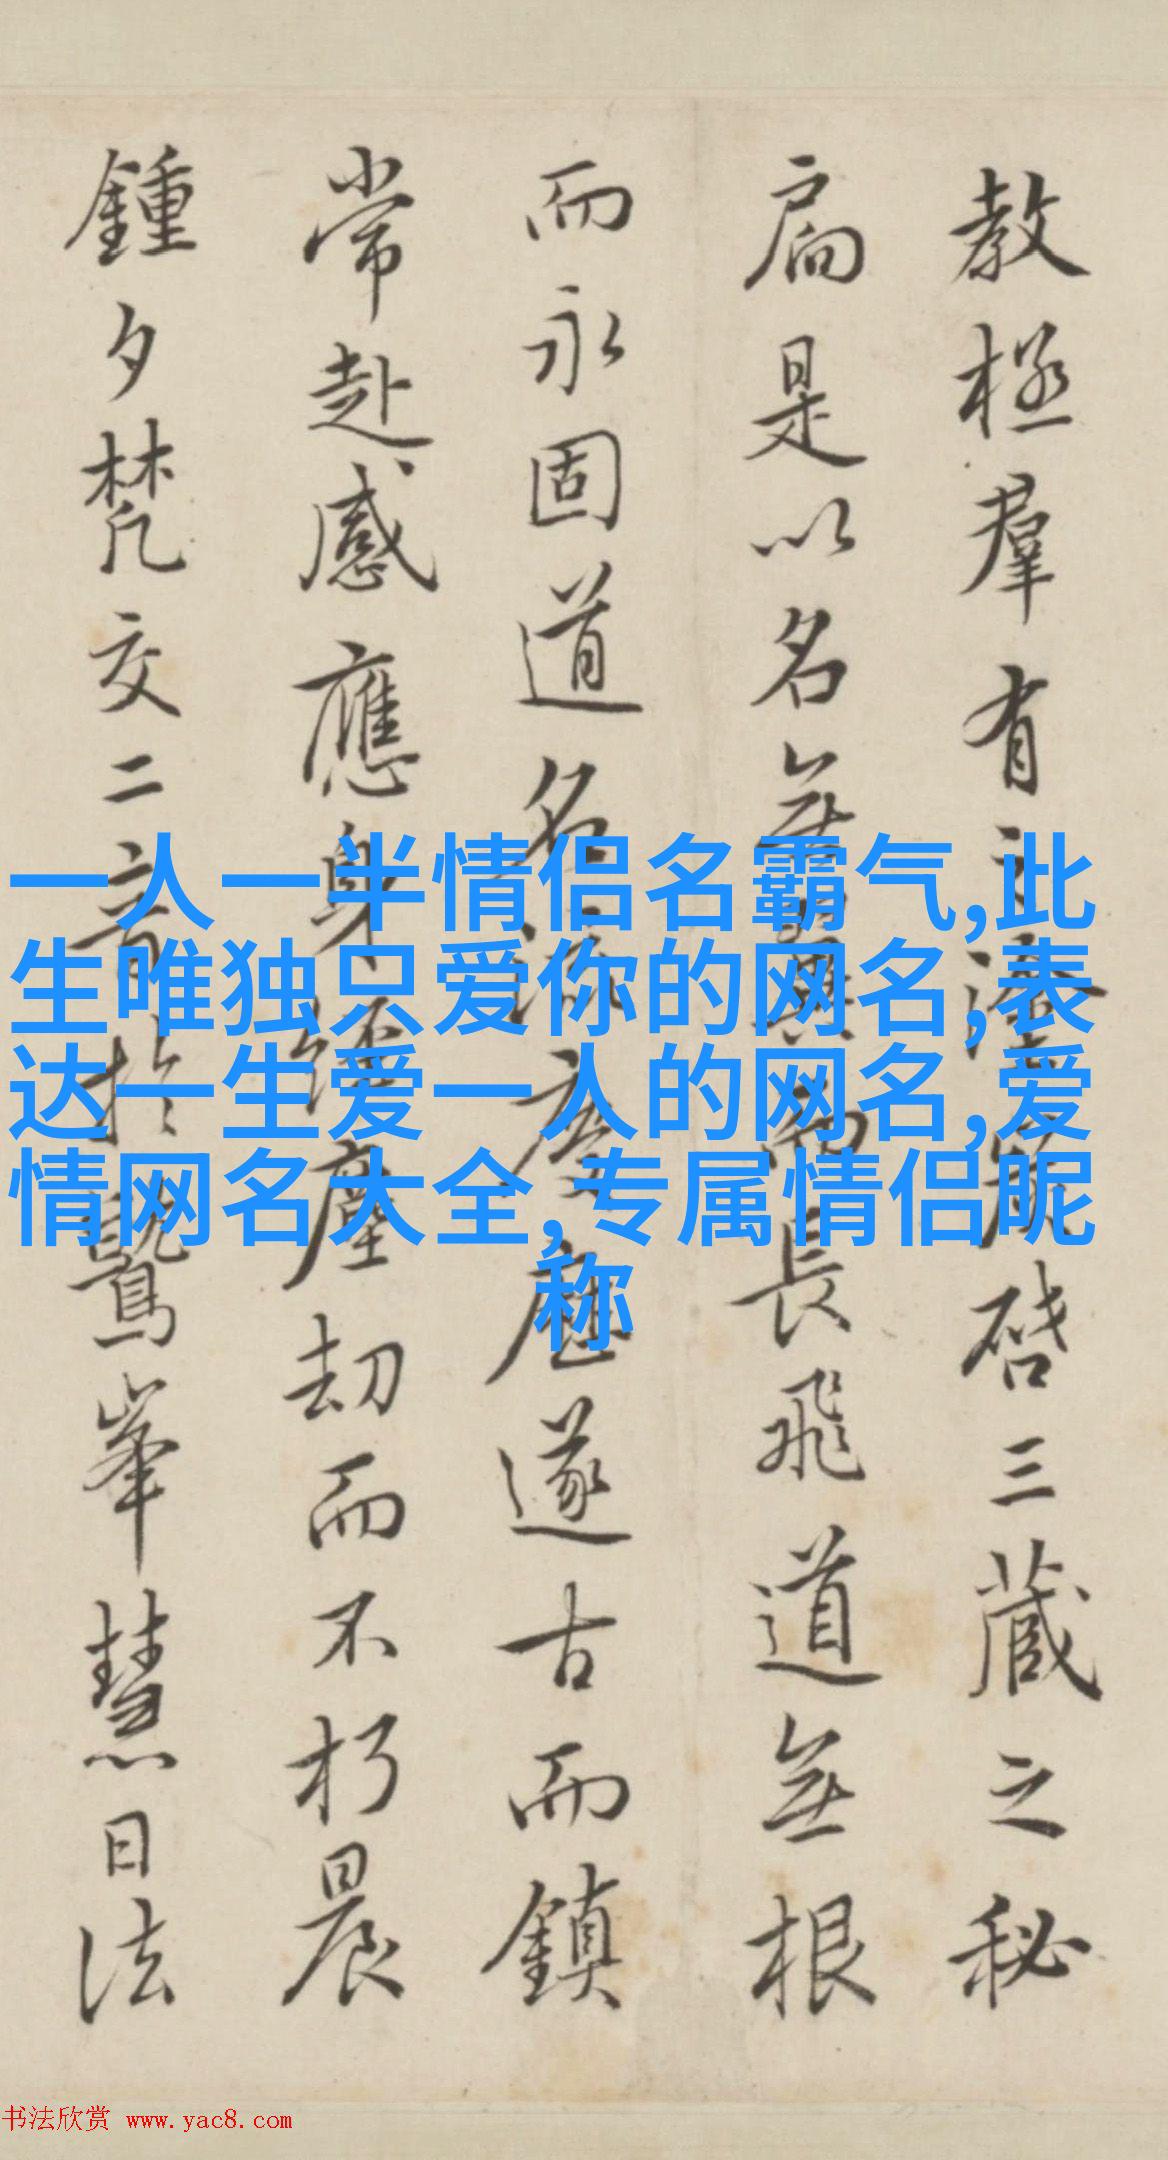 教極羣有之塗炭啓三藏之秘
扃是以名無翼而長飛道無根
而永固道名流慶歷遂古而鎮
常赴感應身經塵劫而不朽晨
鍾夕梵交二音於鷲峯慧日法
一人一半情侣名霸气,此
生唯独只爱你的网名,表
达一生爱一人的网名,爱
情网名大全,专属情侣昵
称
书法欣赏 www.yac8.com